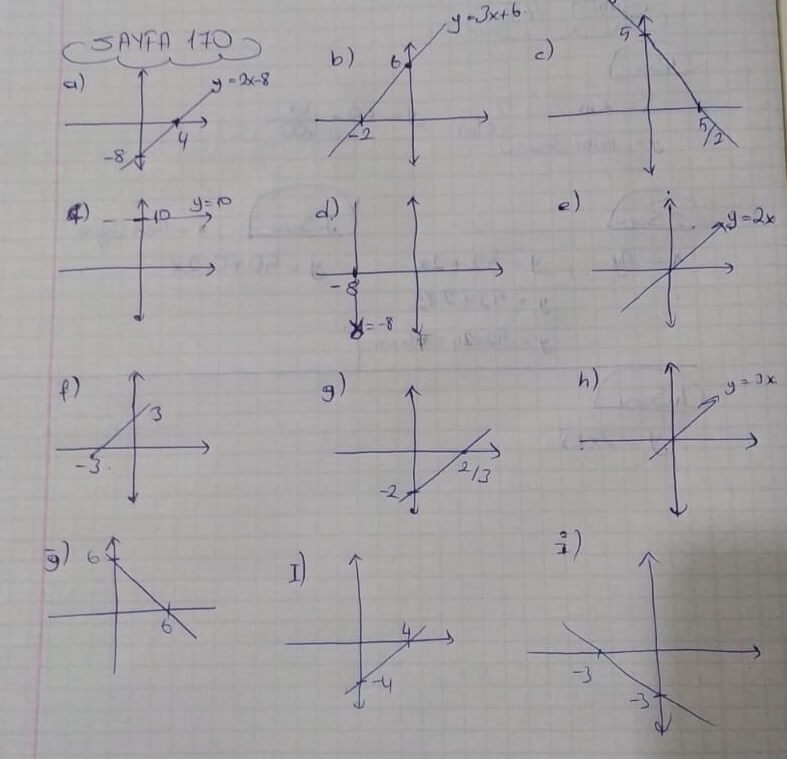 SAYFA 170
a)
y=2x-8
4
-8
b)
y=3x+6
6
-2
c)
5
5/2
ç)
10
y=10
d)
-8
x=-8
e)
y=2x
f)
3
-3
g)
2/3
-2
h)
y=3x
ğ)
6
6
I)
4
-4
i)
-3
-3